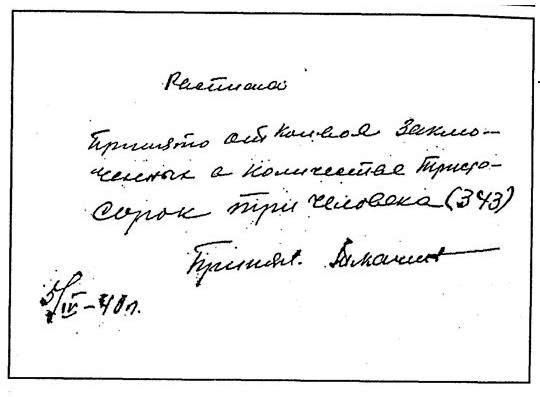 Расписка
Принято от Конвоя Заклю-
ченных в количестве Триста
сорок три человека (343)
Принял.
5/IV-40 г.